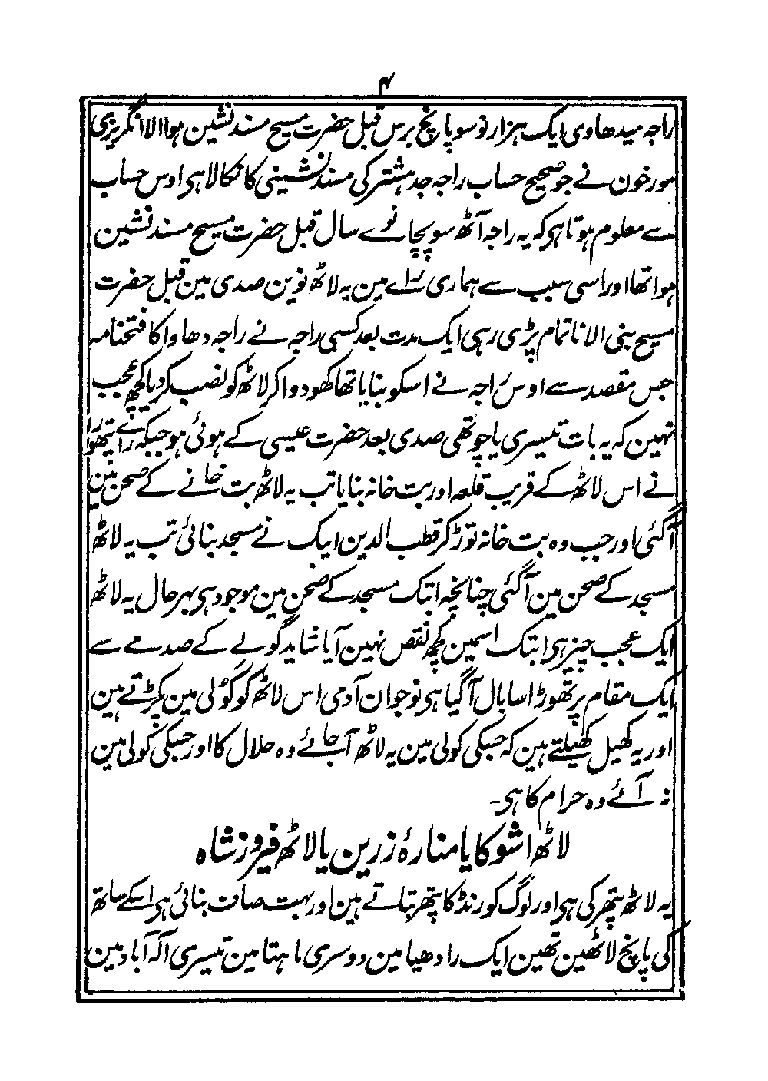 ۴
راجہ میدھاوی ایک ہزار نو سو پانچ برس قبل حضرت مسیح مسند نشین ہوا الا انگریزی
مورخون نے جو صحیح حساب راجہ جدہشتر کی مسند نشینی کا نکالا ہی اوس حساب
سے معلوم ہوتا ہی کہ یہ راجہ آٹھ سو پچانوے سال قبل حضرت مسیح مسند نشین
ہوا تھا اور اسی سبب سے ہماری راے مین یہ لاٹھ نوین صدی مین قبل حضرت
مسیح بنی الا ناتمام پڑی رہی ایک مدت بعد کسی راجہ نے راجہ دھاوا کا فتحنامہ
جس مقصد سے اوس راجہ نے اسکو بنایا تھا کھودوا کر لاٹھ کو نصب کر دیا کچھ عجب
نہین کہ یہ بات تیسری یا چوتھی صدی بعد حضرت عیسی کے ہوئی ہو جبکہ راے پتھورا
نے اس لاٹھ کے قریب قلعہ اور بت خانہ بنایا تب یہ لاٹھ بت خانے کے صحن مین
آگئی اور جب وہ بت خانہ توڑ کر قطب الدین ایبک نے مسجد بنائی تب یہ لاٹھ
مسجد کے صحن مین آگئی چنانچہ ابتک مسجد کے صحن مین موجود ہی بہر حال یہ لاٹھ
ایک عجب چیز ہی ابتک اسمین کچھ نقص نہین آیا شاید گولے کے صدمے سے
ایک مقام پر تھوڑا سا بال آگیا ہی نوجوان آدمی اس لاٹھ کو کولی مین پکڑتے ہین
اور یہ کھیل کھیلتے ہین کہ جسکی کولی مین یہ لاٹھ آجائے وہ حلال کا اور جسکی کولی مین
نہ آئے وہ حرام کا ہی۔
لاٹھ اشوکا یا منارۂ زرین یا لاٹھ فیروز شاہ
یہ لاٹھ پتھر کی ہی اور لوگ کورنڈ کا پتھر بتاتے ہین اور بہت صاف بنائی ہی اسکے ساتھ
کی پانچ لاٹھین تھین ایک رادھیا مین دوسری ماہتا مین تیسری الہ آباد مین